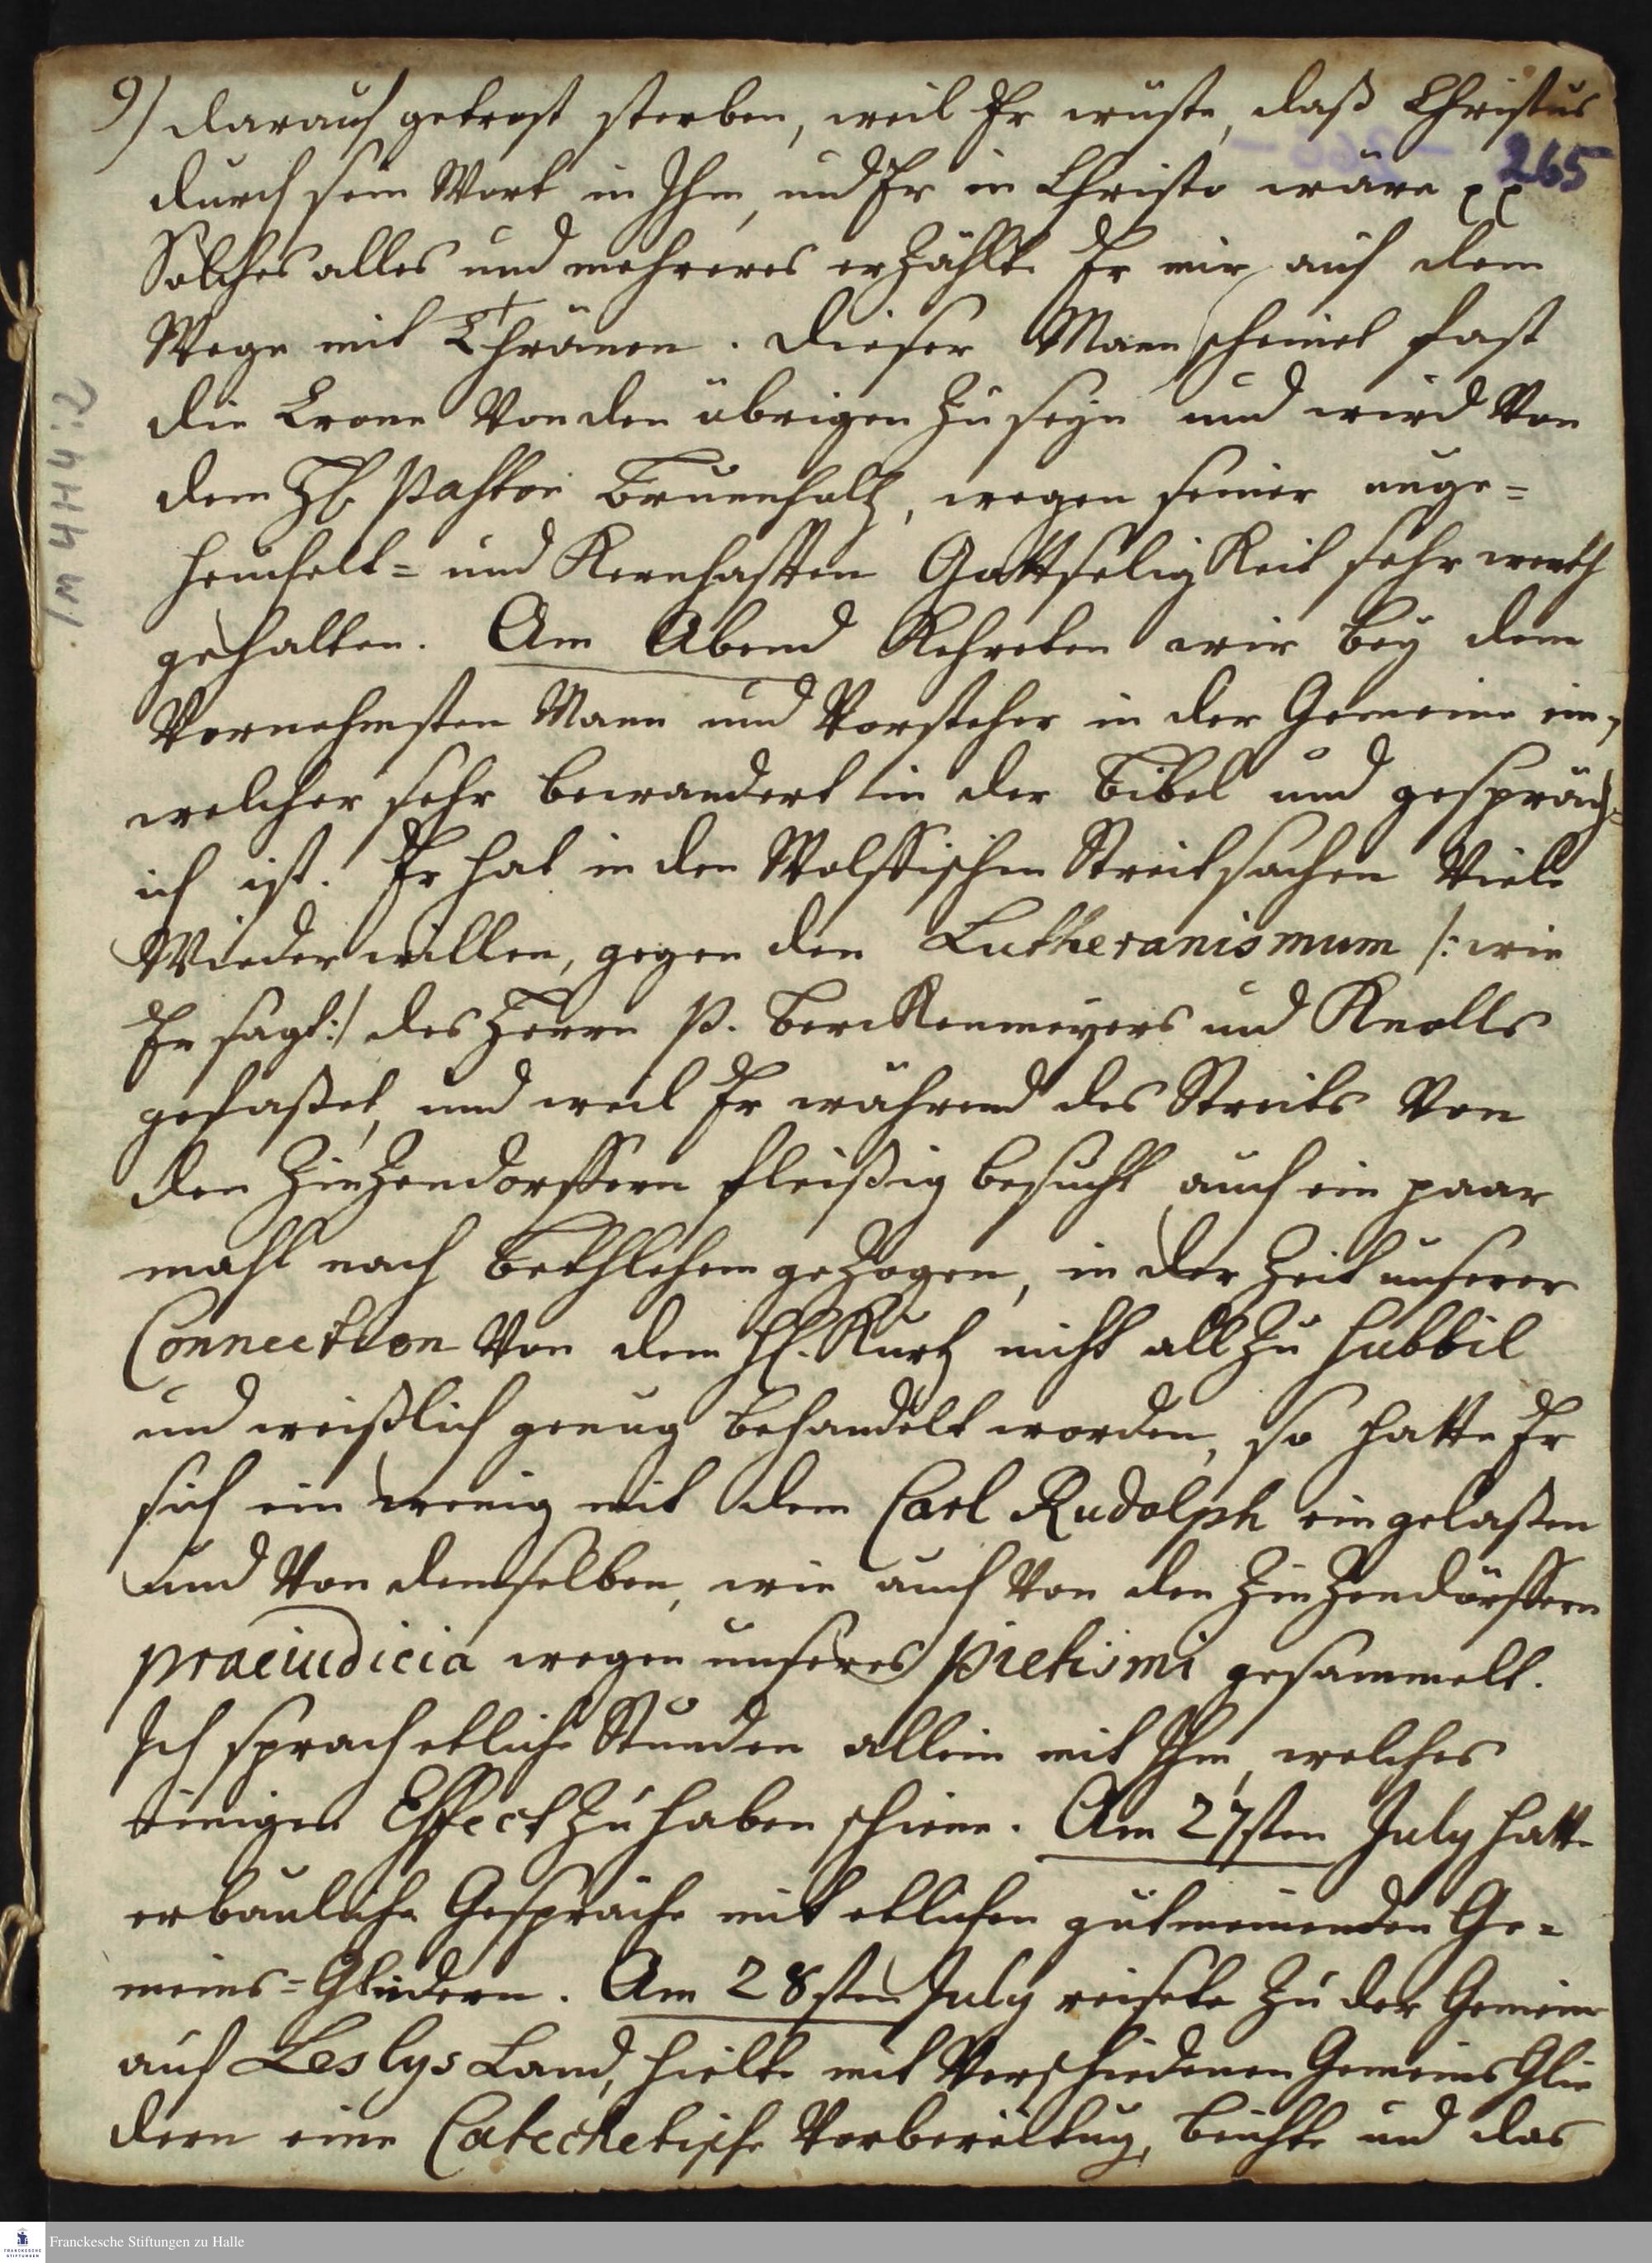 9) darauf getrost sterben, weil Er wuste, daß Christus
265
durch sein Wort in Ihm, und Er in Christo wäre pp
Solches alles und mehreres erzählte Er mir auf dem
Wege mit Thränen. Dieser Mann scheinet fast
die Crone von den übrigen zu seyn und wird von
dem H. Pastor Brunnholtz, wegen seiner unge=
heuchelt= und Kernhafften Gottseligkeit sehr werth
gehalten. Am Abend Kehreten wir bey dem
Vornehmsten Mann und Vorsteher in der Gemeine ein,
welcher sehr bewandert in der Bibel und gespräch=
ich ist. Er hat in den Wolffischen Streitsachen Viele
Wiederwillen, gegen den Lutheranismum /: wie
Er sagt :/ des Herrn P. Berckenmeyers und Knolls
gefaßet, und weil Er während des Streits von
den Zinzendorffern fleißig besucht, auch ein paar
mahl nach Bethlehem gezogen, in der Zeit unserer
Connection von dem H. Kurtz nicht allzu subbtil
und weißlich genug behandelt worden, so hatte Er
sich ein wenig mit dem Carl Rudolph eingelaßen
und von demselben, wie auch von den Zinzendörffern
praeiudicia wegen unseres Pietismi gesammelt.
Ich sprach etliche Stunden allein mit Ihm, welches
einigen Effect zu haben schiene. Am 27sten July hatte
erbauliche Gespräche mit etlichen gutmeinenden Ge=
meins=Gliedern. Am 28sten July reisete zu der Gemeine
auf Leslys Land, hielte mit Verschiedenen Gemeins Glie
dern eine Catechetische Vorbereitung, Beichte und das
/W 4 H 4 : 2
Franckesche Stiftungen zu Halle
FRANCKESCHE STIFTUNGEN